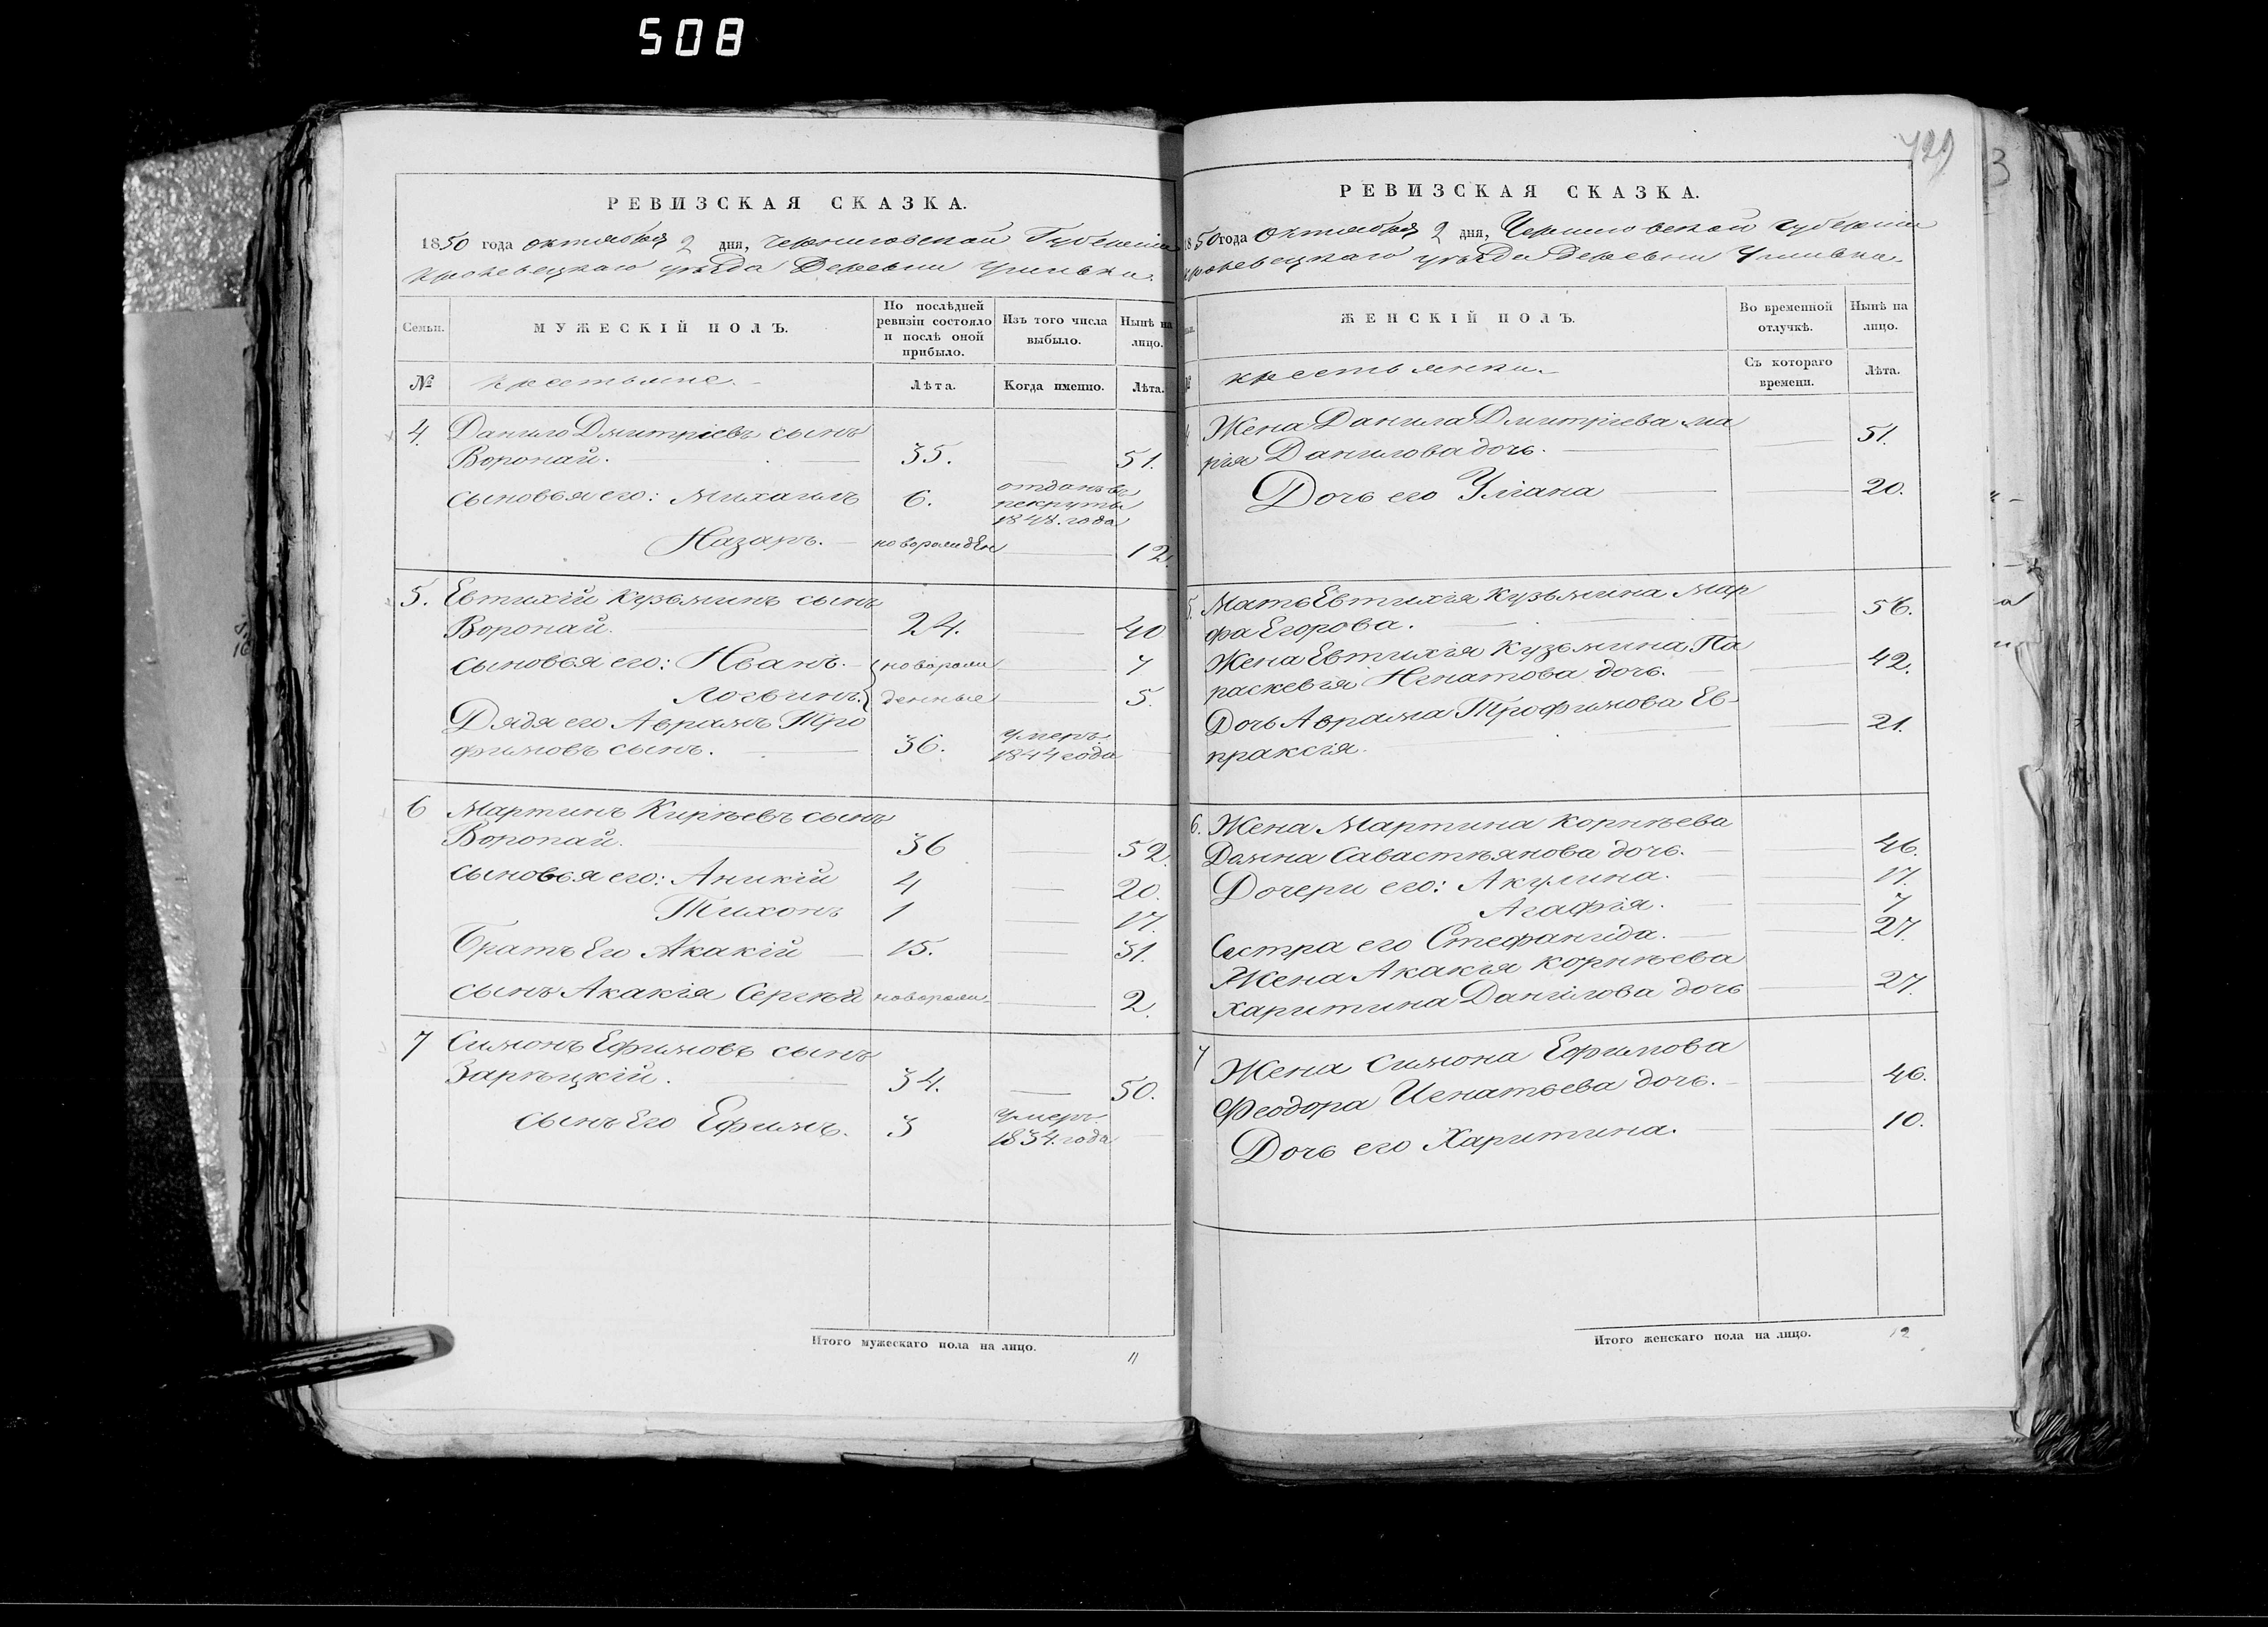 508
РЕВИЗСКАЯ СКАЗКА.
1850 года октября 2 дня, Черниговской Губерніи
Кролевецкаго уѣзда Деревни
Семьи.
МУЖЕСКІЙ ПОЛЪ.
По послѣдней ревизіи состояло и послѣ оной прибыло.
Изъ того числа выбыло.
Нынѣ на лицо.
№
крестьяне.
Лѣта.
Когда именно.
Лѣта.
4. Данило Дмитріевъ сынъ
Воропай. 35. 51.
сыновья его: Михаилъ 6. отданъ въ
рекруты
1848. года
Назаръ. новорожден 12.
5. Евтихій Кузьминъ сынъ
Воропай. 24. 40
сыновья его: Иванъ. новорож 7
Логвинъ. денные 5.
Дядя его Аврамъ Тро
фимовъ сынъ. 36. умеръ
1844 года
6 Мартинъ Кирѣевъ сынъ
Воропай. 36 52.
сыновья его: Аникій 4 20.
Тихонъ 1 17.
Братъ Его Акакій 15. 31.
сынъ Акакія Сергѣй новорож 2.
7 Симонъ Ефимовъ сынъ
Зарѣцкій. 34. 50.
сынъ Его Ефимъ. 3 умеръ
1834. года
Итого мужескаго пола на лицо.
11
729
3
РЕВИЗСКАЯ СКАЗКА.
1850 года Октября 2 дня, Черниговской губерніи
Кролевецкаго уѣзда Деревни
ЖЕНСКІЙ ПОЛЪ.
Во временной отлучкѣ.
Нынѣ на лицо.
крестьянки.
Съ котораго времени.
Лѣта.
4 Жена Данила Дмитріева Ма
рія Данилова дочь. 51.
Дочь его Уліана 20.
5. Мать Евтихія Кузьмина Мар
фа Егорова. 56.
Жена Евтихія Кузьмина Па
раскевія Игнатова дочь. 42.
Дочь Аврама Трофимова Ев-
праксія. 21.
6. Жена Мартина Корнѣева
Домна Савастьянова дочь. 46.
Дочери его: Акулина. 17.
Агафія. 7
Сестра его Стефанида. 27.
Жена Акакія Корнѣева
Харитина Данілова дочь 27.
7 Жена Симона Ефимова
Феодора Игнатьева дочь. 46.
Дочь его Харитина. 10.
Итого женскаго пола на лицо.
12